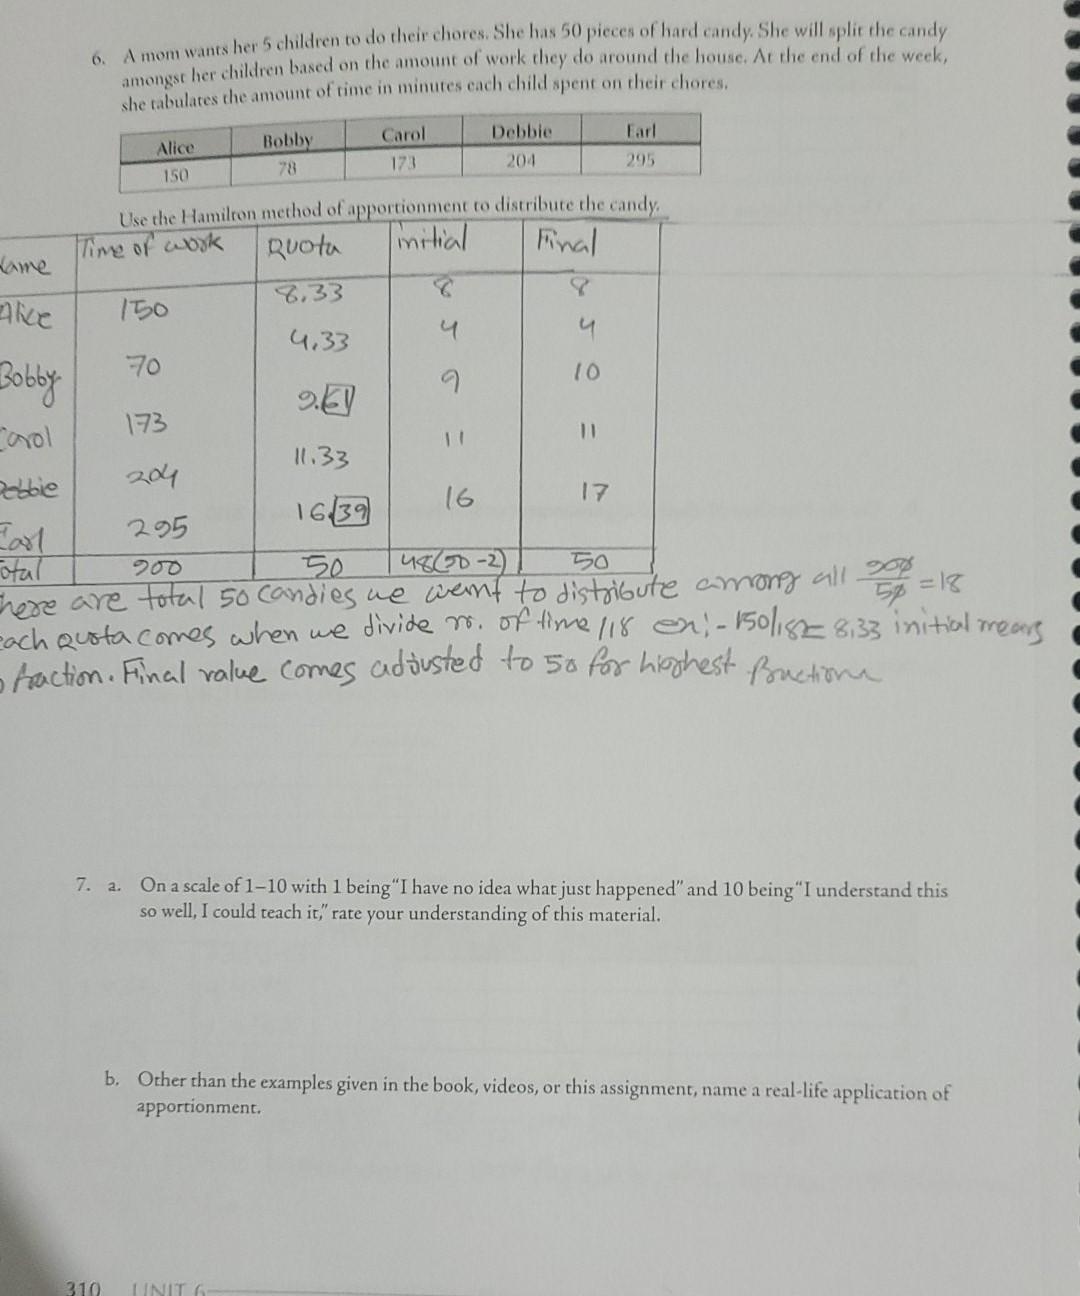 6. A mom wants her 5 children to do their chores. She has 50 pieces of hard candy. She will split the candy
amongst her children based on the amount of work they do around the house. At the end of the week,
she tabulates the amount of time in minutes each child spent on their chores.
Alice Bobby Carol Debbie Earl
150 78 173 204 295
Use the Hamilton method of apportionment to distribute the candy.
Name Time of work Quota initial Final
Alice 150 8.33 8 8
Bobby 70 4.33 4 4
Carol 173 9.61 9 10
Debbie 204 11.33 11 11
Earl 295 16.39 16 17
Total 900 50 48(50-2) 50
here are total 50 candies we want to distribute among all 900/50 = 18
each Quota comes when we divide no. of time /18 ex:- 150/18= 8.33 initial means
fraction. Final value comes adjusted to 50 for highest fraction
7. a. On a scale of 1–10 with 1 being "I have no idea what just happened" and 10 being "I understand this
so well, I could teach it," rate your understanding of this material.
b. Other than the examples given in the book, videos, or this assignment, name a real-life application of
apportionment.
310 UNIT 6